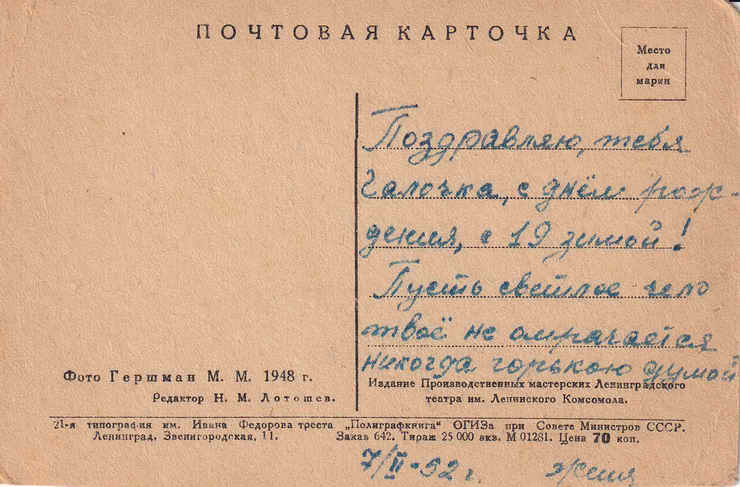 ПОЧТОВАЯ КАРТОЧКА
Место
для
марки
Поздравляю, тебя
Галочка, с днём рож-
дения, с 19 зимой!
Пусть светлое чело
твоё не омрачается
никогда горькою думой
Фото Гершман М. М. 1948 г.
Редактор Н. М. Лотошев.
Издание Производственных мастерских Ленинградского
театра им. Ленинского Комсомола.
21-я типография им. Ивана Федорова треста „Полиграфкнига" ОГИЗа при Совете Министров СССР.
Ленинград, Звенигородская, 11. Заказ 642. Тираж 25 000 экз. М 01281. Цена 70 коп.
7/II-52 г. Женя